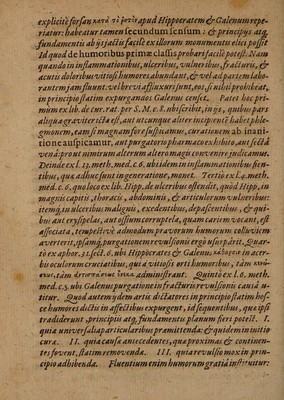 explicitè forsan κατὰ τὸ ῥητὸν apud Hippocratem & Galenum repe-
riatur: habeatur tamen secundum sensum: & principus atq.
fundamentis ab ijs iactis facilè ex illorum monumentis elici possit
Id quod de humoribus primæ classis probari facilè potest. Nam
quando in inflammationibus, ulceribus, vulneribus, fracturis, &
acutis doloribus vitiosi humores abundant, & vel ad partem labo-
rantem iam fluunt, vel brevi affluxuri sunt, eos, si nihil prohibeat,
in principio statim expurgandos Galenus censet. Patet hoc pri-
mùm ex lib. de cur. rat. per S. M. c. 8. ubi scribit, in ijs, quibus pars
aliqua graviter icta est, aut utcunque aliter incipientē habet phle-
gmonem, eam si magnam fore suspicamur, curationem ab inani-
tione auspicamur, aut purgatorio pharmaco exhibito, aut sectâ
venâ, prout nimirum alterum altero magis convenire judicamus.
Deinde ex l. 13. meth. med. c. ubi idem in inflammationibus sien-
tibus, quæ adhuc sunt in generatione, monet. Tertiò ex l. 4. meth.
med. c. 6. quo loco ex lib. Hipp. de ulceribus ostendit, quòd Hipp. in
magnis capitis, thoracis, abdominis, & articulorum vulneribus:
itemq. in ulceribus malignis, exedentibus, depascentibus, & qui-
bus aut erysipelas, aut ossium corruptela, quam cariem vocant, est
associata, tempestivè admodum pravorum humorum colluviem
averterit, ipsamq. purgationem revulsionis ergò usurparit. Quar-
tò ex aphor. 31. sect. 6. ubi Hippocrates & Galenus κάθαρσιν in acer-
bis oculorum cruciatibus, quia vitiosi orti humoribus, tam
tam ἀντισπάσεως ἕνεκα administrant. Quintò ex l. 6. meth.
med. c. 5. ubi Galenus purgatione in fracturis revulsionis causâ u-
titur. Quod autem ydem artis dictatores in principio statim hos-
ce humores dictis in affectibus expurgent, id sequentibus, quæ ipsi
tradiderunt, principiis atq. fundamentis planum fieri potest: I.
quia universalia particularibus præmittenda: & quidem in initio
cura. II. quia causa antecedentes, qua proximas & continen-
tes fovent, statim removenda. III. quia revulsio mox in prin-
cipio adhibenda. Fluentium enim humorum gratiâ instituitur: